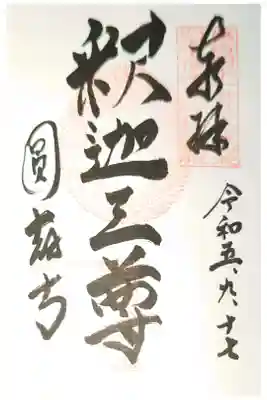 奉拝
令和五、九、十七
釈迦三尊
圓蔵寺